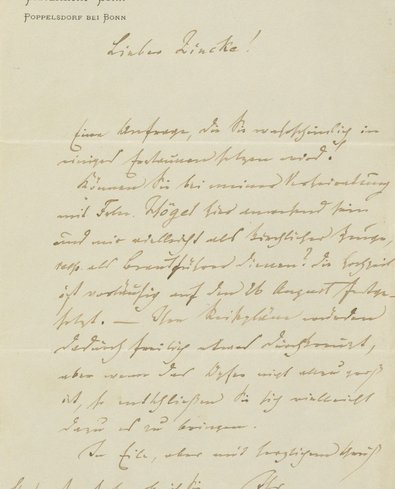 Poppelsdorf bei Bonn
Lieber Zincke!
Eine Anfrage, die Sie wahrscheinlich in
einiges Erstaunen setzen wird!
Können Sie bei meiner Verheiratung
mit Frln. Högel hier anwesend sein
und mir vielleicht als kirchlicher Zeuge,
resp. als Brautführer dienen? Die Hochzeit
ist vorläufig auf den 26 August festge-
setzt. — Ihre Reisepläne würden
dadurch freilich etwas durchkreuzt,
aber wenn das Opfer nicht allzu groß
ist, so entschließen Sie sich vielleicht
dazu es zu bringen.
In Eile, aber mit herzlichem Gruß
Ihr